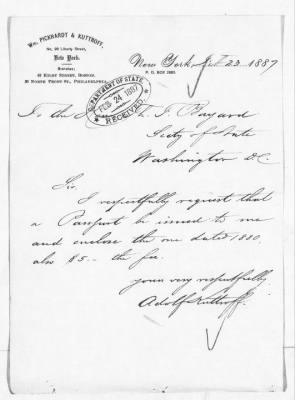 Wm. PICKHARDT & KUTTROFF,
No. 98 Liberty Street,
New York.
Branches:
47 KILBY STREET, BOSTON.
20 NORTH FRONT ST., PHILADELPHIA.
New York, Feb 23 1887
P. O. BOX 2880.
DEPARTMENT OF STATE
FEB 24 1887
RECEIVED.
To the T. F. Bayard
Secty of State
Washington D.C.
Sir,
I respectfully request that
a Passport be issued to me
and enclose the one dated 1880,
also $5.- the fee.
yours very respectfully
Adolf Kuttroff.